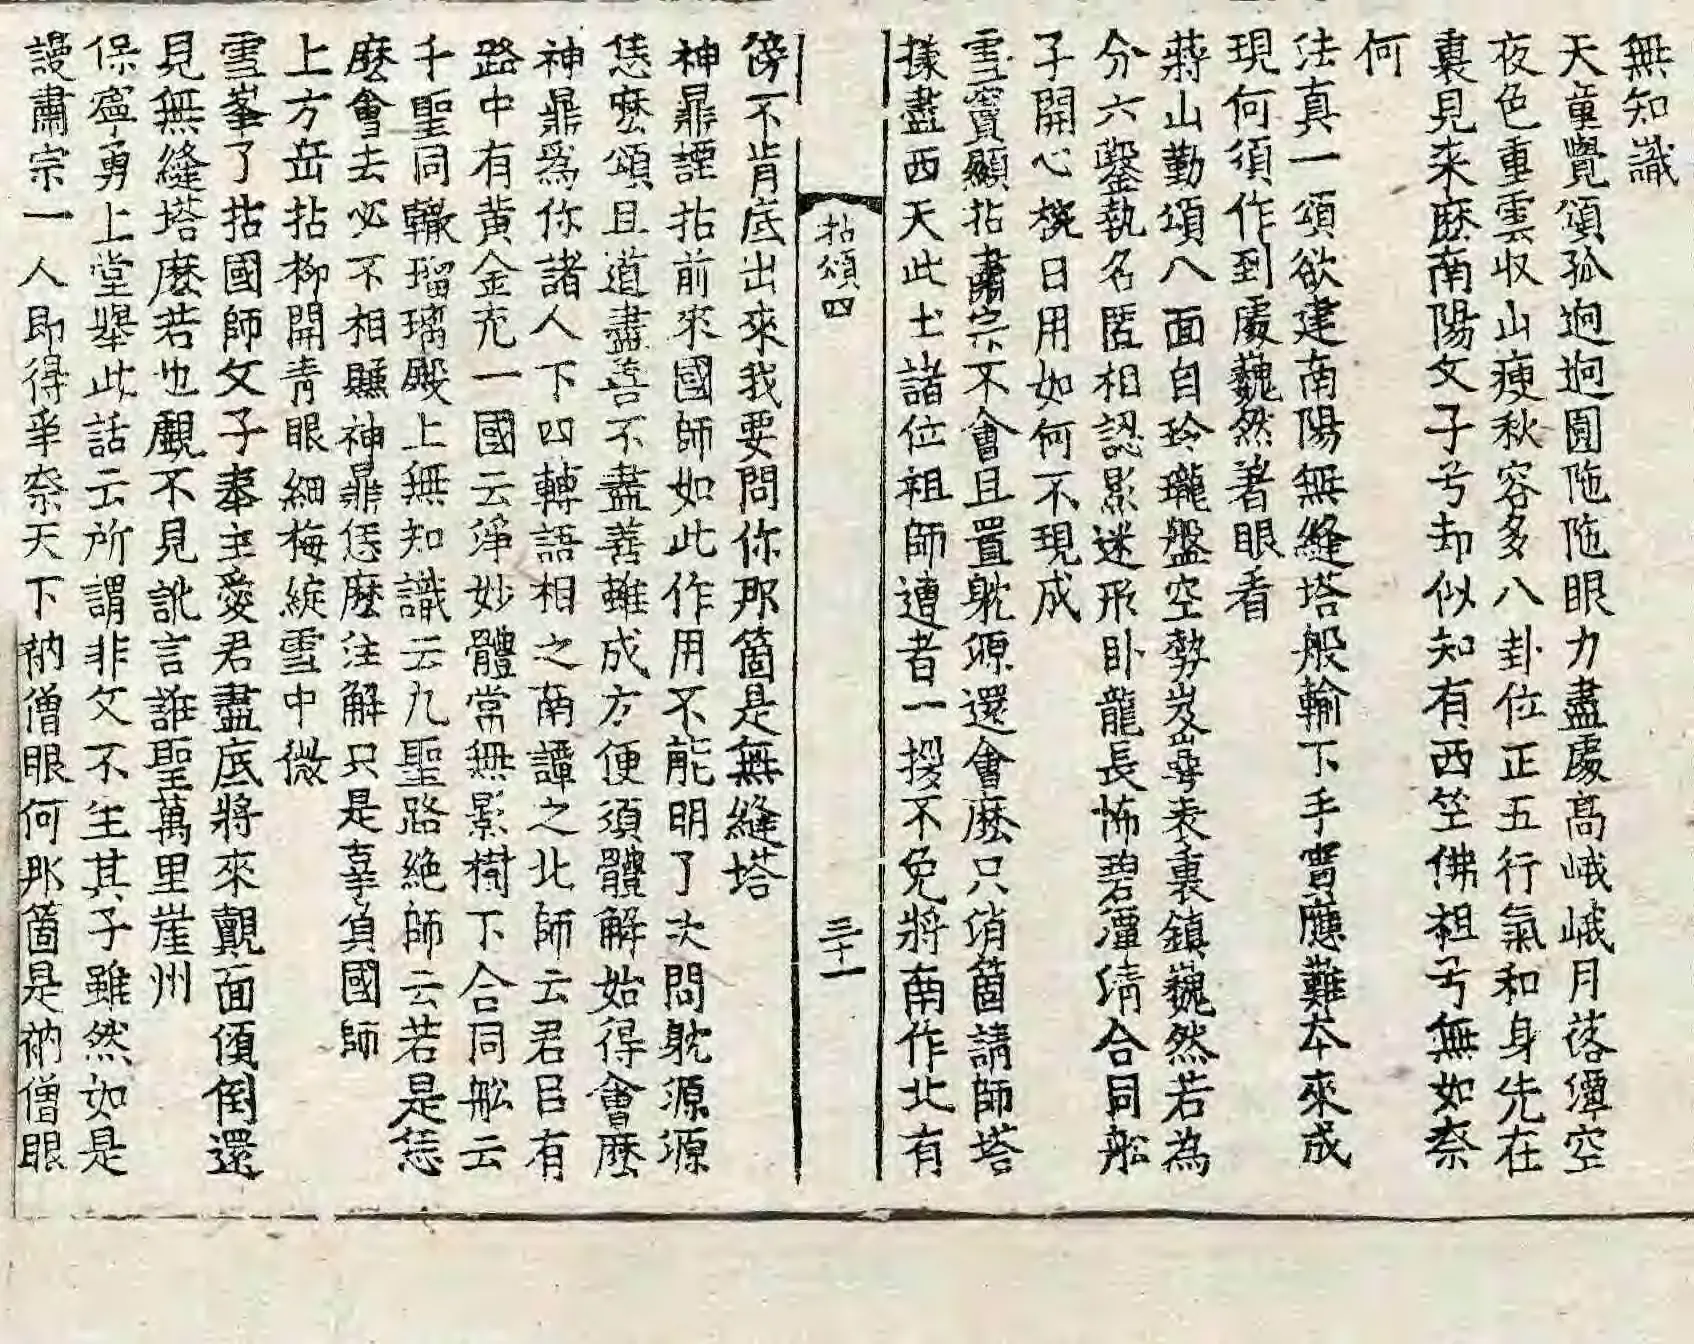 無知識
天童覺頌孤逈逈圓陁陁眼力盡處髙峨峨月落潭空
夜色重雲収山瘦秋容多八卦位正五行氣和身先在
裏見来麽南陽父子兮却似知有西竺佛祖兮無如奈
何
法真一頌欲建南陽無縫塔般輸下手實應難本來成
現何須作到處巍然著眼看
蔣山勤頌八面自玲瓏盤空勢岌嶪表裏鎮巍然若為
分六鑿執名匿相認影迷形卧龍長怖碧潭清合同舩
子開心椀日用如何不現成
雪竇顯拈肅宗不會且置躭源還會麽只消箇請師塔
樣盡西天此土諸位祖師遭者一拶不免將南作北有
拈頌四
三十一
傍不肯底出來我要問你那箇是無縫塔
神鼎諲拈前來國師如此作用不能明了次問躭源源
恁麽頌且道盡善不盡善雖成方便須體解始得會麽
神鼎爲你諸人下四轉語相之南譚之北師云君臣有
路中有黃金充一國云淨妙體常無影樹下合同舩云
千聖同轍瑠璃殿上無知識云九聖路絶師云若是恁
麽會去必不相賺神鼎恁麽注解只是辜負國師
上方岳拈柳開靑眼細梅綻雪中微
雪峯了拈國師父子奉主愛君盡底將來覿面傾倒還
見無縫塔麽若也覷不見訛言誰聖萬里崖州
保寧勇上堂擧此話云所謂非父不生其子雖然如是
謾肅宗一人即得爭奈天下衲僧眼何那箇是衲僧眼